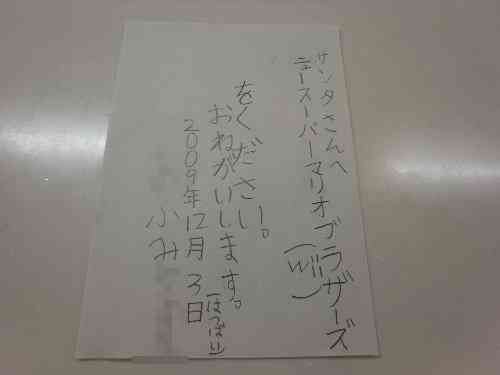 サンタさんへ
ニュースーパーマリオブラザーズ
(Wii)
をください。
おねがいします。
2009年12月3日
(はつばい)
ふみ